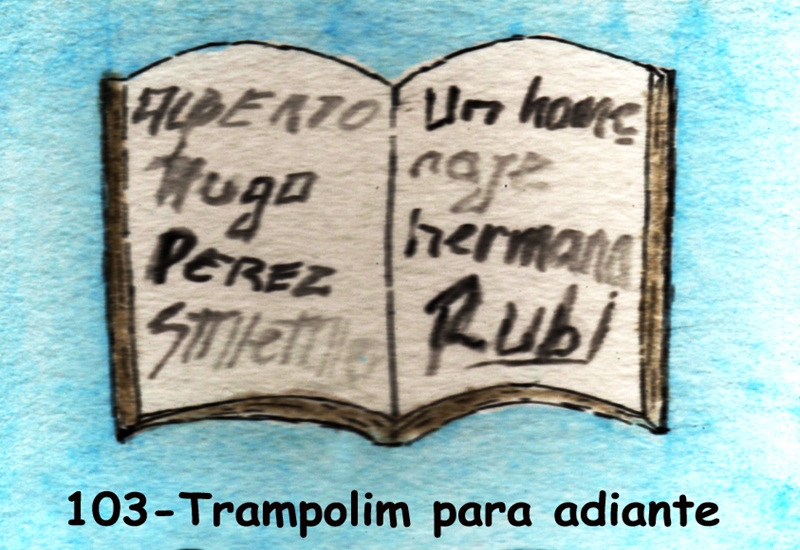 ALBERTO
Hugo
PEREZ
Un home
naje
hermano
Rubi
103-Trampolim para adiante